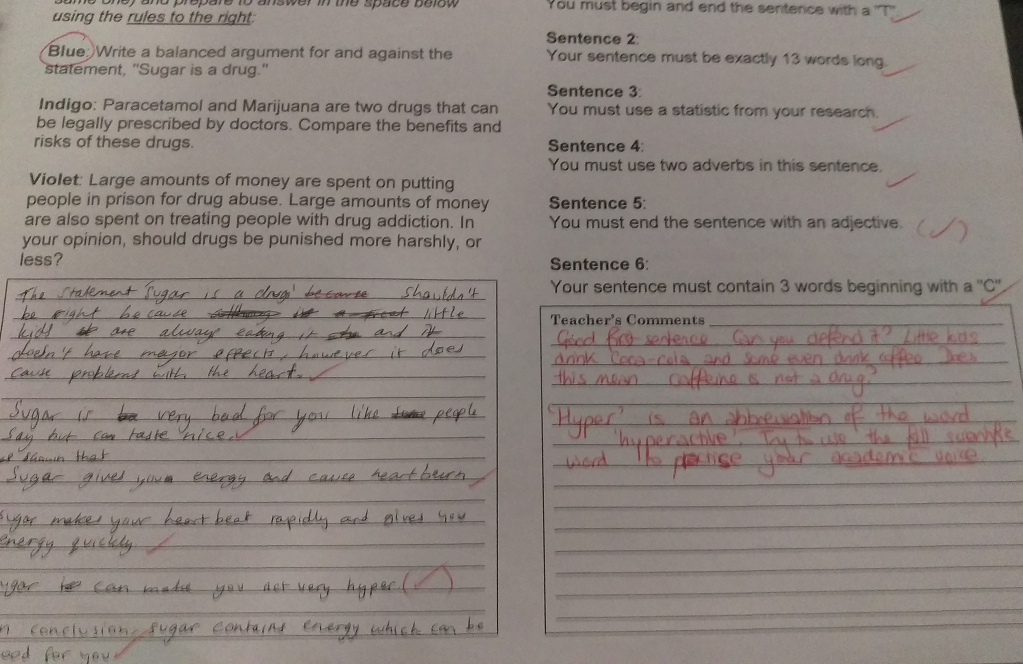 same one) and prepare to answer in the space below
using the rules to the right:
Blue: Write a balanced argument for and against the
statement, "Sugar is a drug."
Indigo: Paracetamol and Marijuana are two drugs that can
be legally prescribed by doctors. Compare the benefits and
risks of these drugs.
Violet: Large amounts of money are spent on putting
people in prison for drug abuse. Large amounts of money
are also spent on treating people with drug addiction. In
your opinion, should drugs be punished more harshly, or
less?
The statement 'Sugar is a drug' because shouldn't
be right because little
kids are always eating it and it
doesn't have mayor effects, however it does
cause problems with the heart.
Sugar is very bad for you like people
say but can taste nice.
shown that
Sugar gives you energy and cause heartburn
Sugar makes your heart beat rapidly and gives you
energy quickly
can make you act very hyper.
conclusion, sugar contains energy which can be
for you
You must begin and end the sentence with a "T"
Sentence 2:
Your sentence must be exactly 13 words long.
Sentence 3:
You must use a statistic from your research.
Sentence 4:
You must use two adverbs in this sentence.
Sentence 5:
You must end the sentence with an adjective.
Sentence 6:
Your sentence must contain 3 words beginning with a "C"
Teacher's Comments
Good first sentence. Can you defend it? Little kids
drink Coca-cola and some even drink coffee. Does
this mean caffeine is not a drug?
'Hyper' is an abbreviation of the word
'hyperactive'. Try to use the full scientific
word to practise your academic voice.